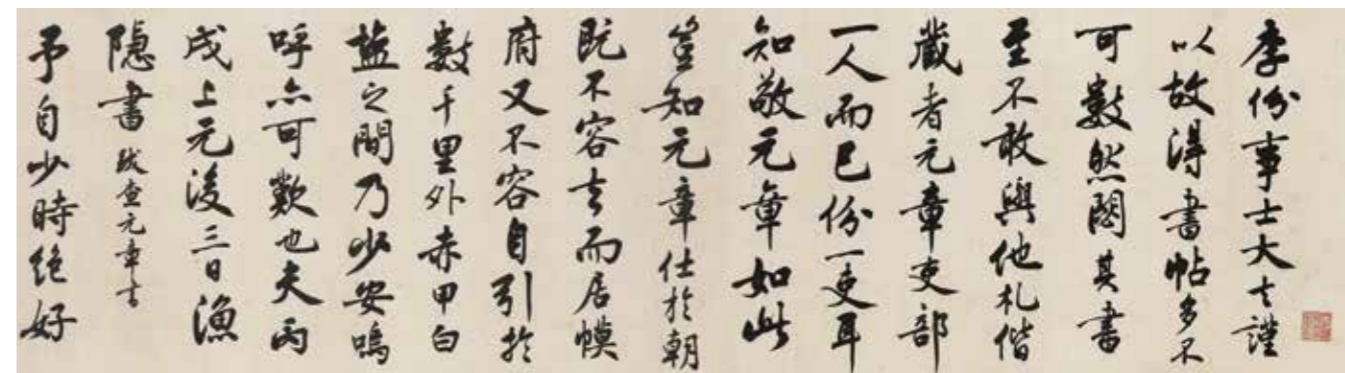 李份事士大夫謹
以故得書帖多不
可數然閟其書
至不敢與他札偕
藏者元章吏部
一人而已份一吏耳
知敬元章如此
豈知元章仕於朝
既不容去而居幙
府又不容自引於
數千里外赤甲白
盐之間乃少安嗚
呼亦可歎也夫丙
戌上元後三日漁
隱書 跋查元章書
予自少時絕好